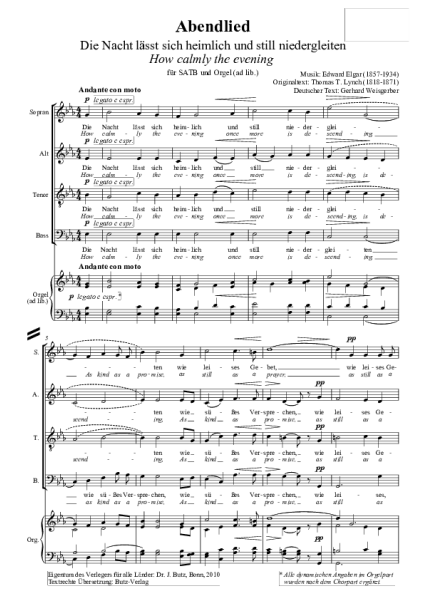 Abendlied
Die Nacht lässt sich heimlich und still niedergleiten
How calmly the evening
für SATB und Orgel (ad lib.)
Musik: Edward Elgar (1857-1934)
Originaltext: Thomas T. Lynch (1818-1871)
Deutscher Text: Gerhard Weisgerber
Andante con moto
p legato e espr.
Sopran
Die Nacht lässt sich heim-lich und still nie - der - glei -
How calm - ly the eve - ning once more is de - scend - ing
p legato e espr.
Alt
Die Nacht lässt sich heim-lich und still nie - der - glei -
How calm - ly the eve - ning once more is de -
p legato e espr.
Tenor
Die Nacht lässt sich heim-lich und still nie - der - glei -
How calm - ly the eve - ning once more is de - scend-ing, is de -
p legato e espr.
Bass
Die Nacht lässt sich heim-lich und still nie - der - glei - ten
How calm - ly the eve - ning once more is de - scend - ing
Andante con moto
Orgel
(ad lib.)
p legato e espr.*
5
pp
S.
ten wie lei - ses Ge - bet, wie lei - ses Ge
As kind as a pro - mise, as still as a prayer, as still as a
pp
A.
ten wie sü - ßes Ver - spre - chen, wie lei - ses Ge -
scend - ing. As kind as a pro - mise, as still as a
pp
T.
ten wie sü - ßes Ver - spre - chen, wie lei - ses Ge -
scend - ing. As kind as a pro - mise, as still as a
pp
B.
wie sü - ßes Ver - spre - chen, wie lei - ses,
as kind as a pro - mise. As kind as a pro - mise, as still as a
pp
Org.
Eigentum des Verlegers für alle Länder: Dr. J. Butz, Bonn, 2010
Textrechte Übersetzung: Butz-Verlag
* Alle dynamischen Angaben im Orgelpart
wurden nach dem Chorpart ergänzt